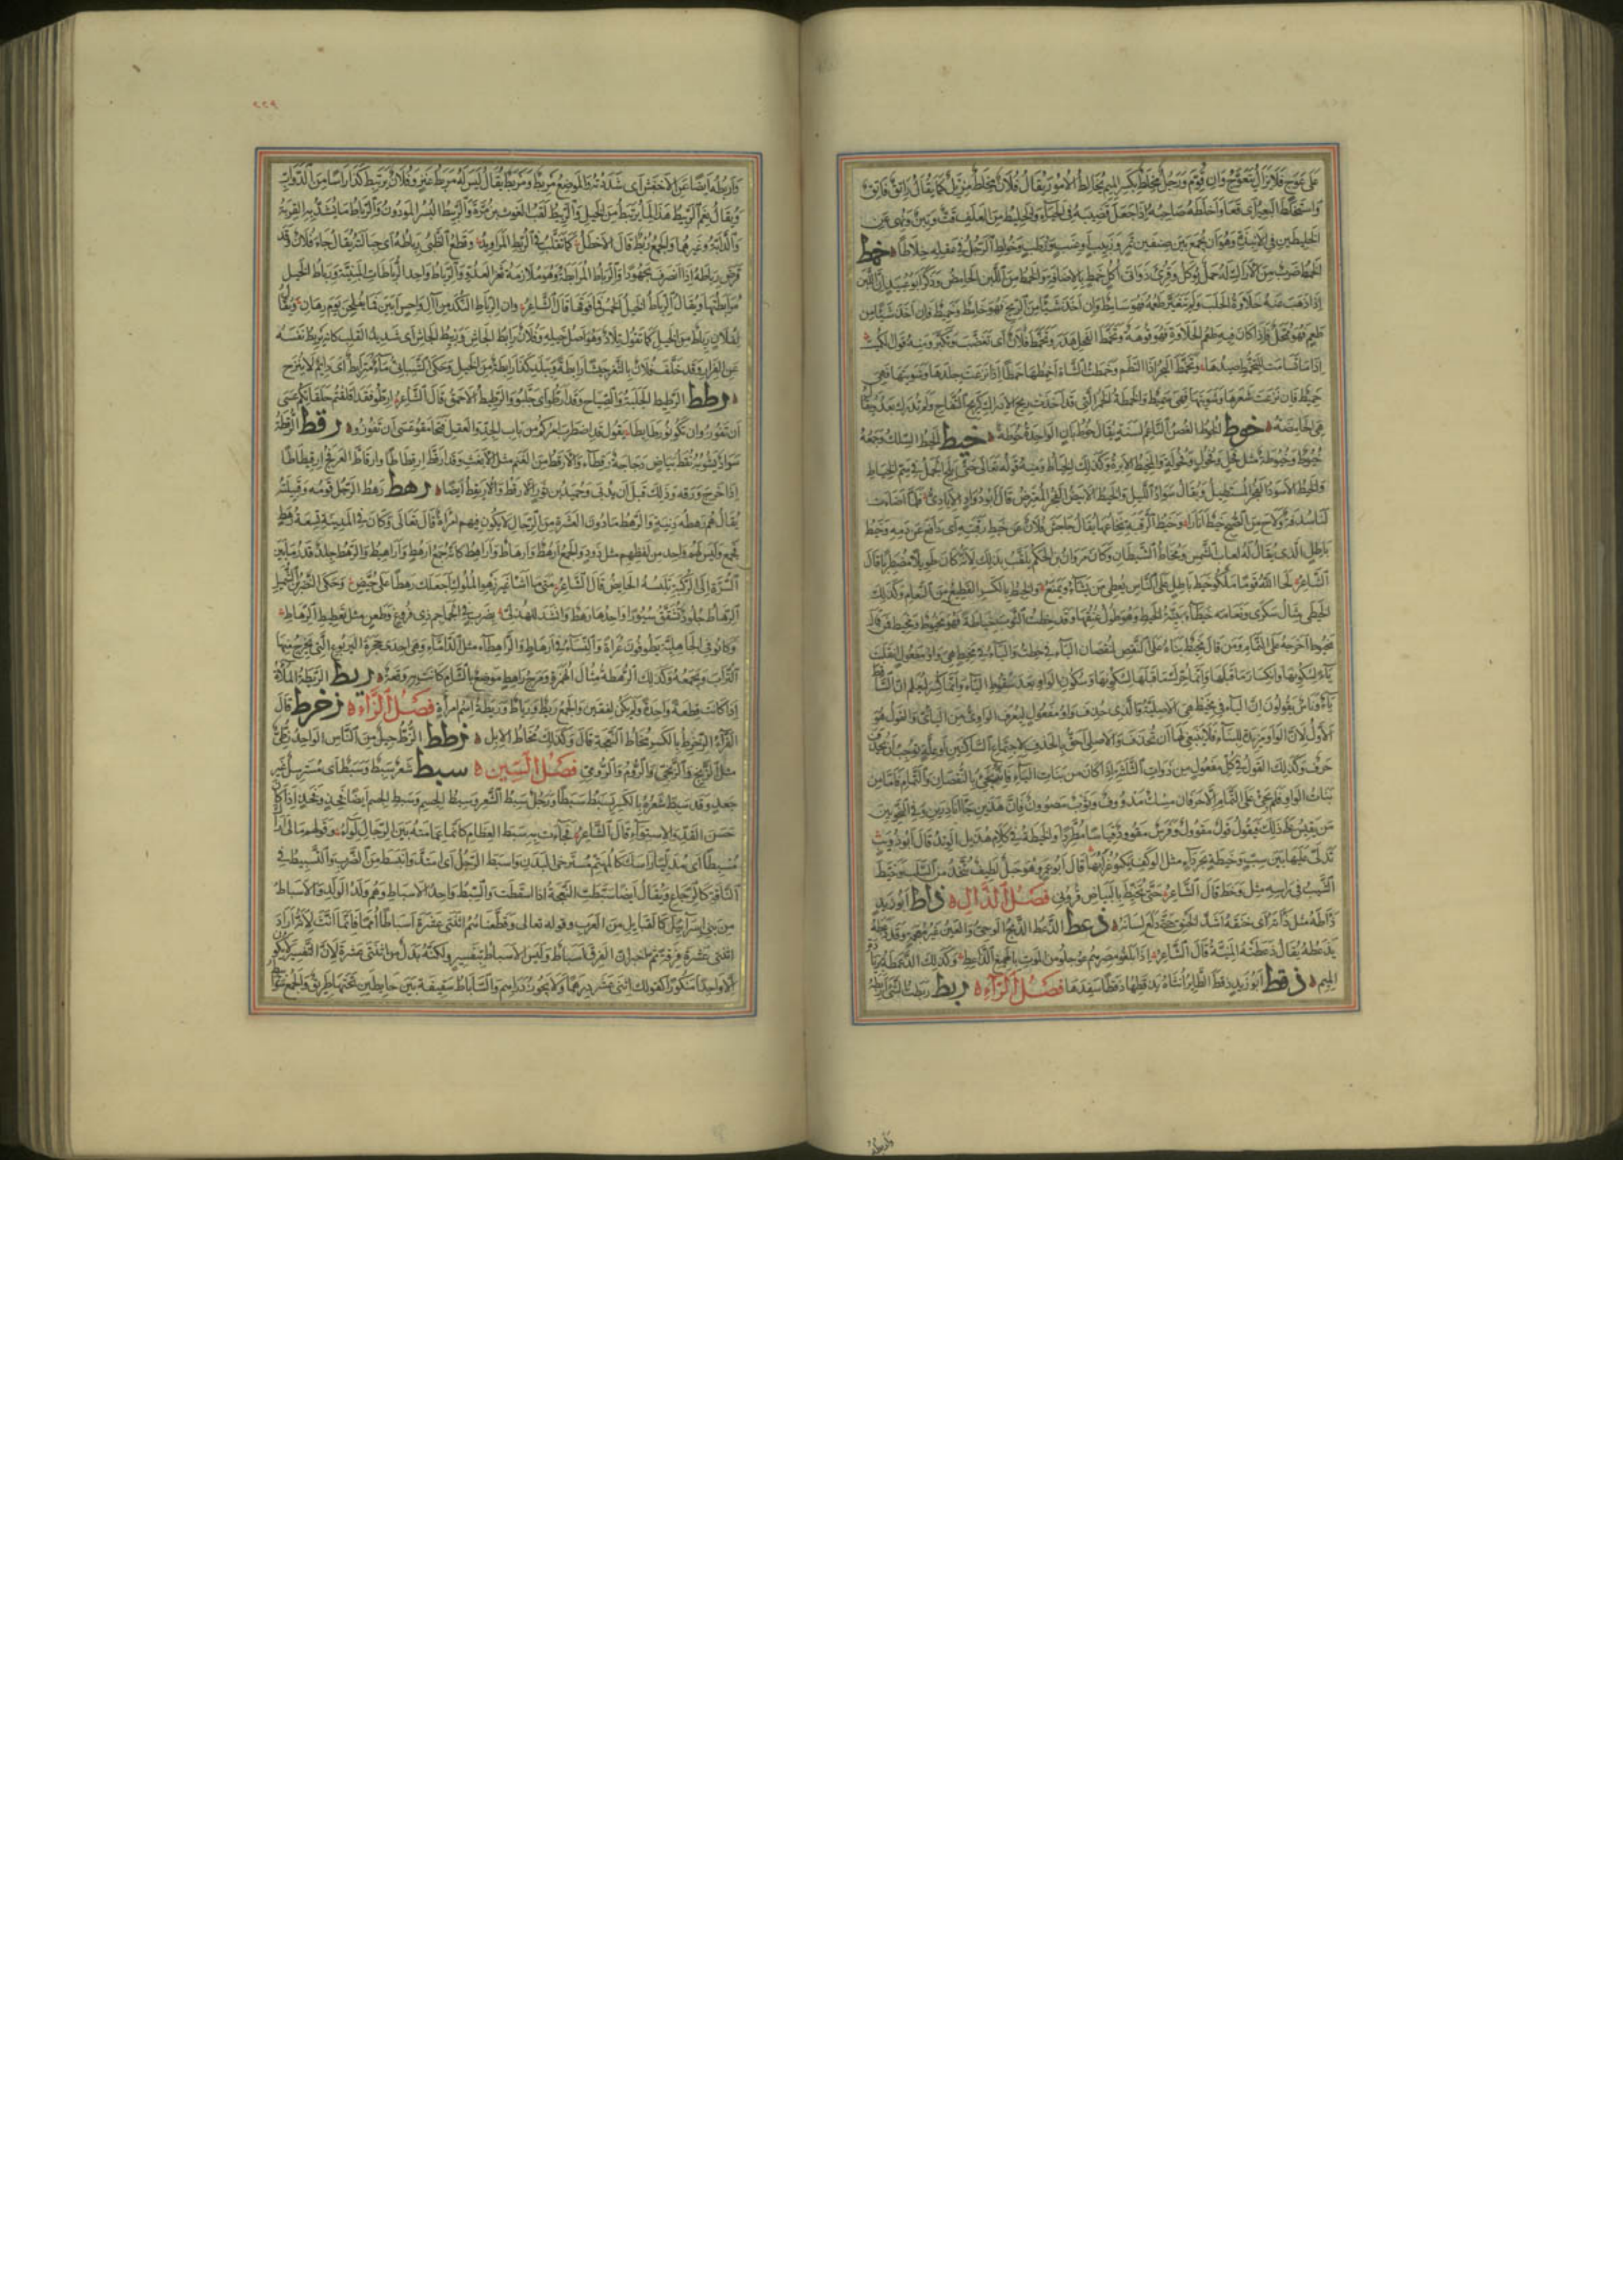 على عوج فلا يزال يتعوج وان قوم ورجل مخلط بكسر الميم يخالط الامور يقال فلان مخلط مزيل كما يقال راتق فاتق
واستخلط البعير اى قعا واخلطه صاحبه اذا جعل قضيبه فى الحياء والخليط من العلف تبن وقت ونهى عن
الخليطين فى الانبذة وهو ان يجمع بين صنفين تمر وزبيب او عنب ورطب وخولط الرجل فى عقله خلاطا خمط
الخمط ضرب من الاراك له حمل يوكل وقرئ ذواتى اكل خمط بالاضافة والخمط من اللبن الحامض وذكر ابو عبيد ان اللبن
اذا ذهب عنه حلاوة الحلب ولم يتغير طعمه فهو سامط وان اخذ شيئا من الريح فهو خامط وخميط فان اخذ شيئا من
طعم فهو ممحل فاذا كان فيه طعم الحلاوة فهو قوهة وتخمط الفحل هدر وتخمط فلان اى تغضب وتكبر ومنه قول الكميت
خميط فان نزعت شعرها وشويتها فهى سميط والخمطة الخمر التى قد اخذت ريح الادراك كريح التفاح ولم تدرك بعد ويقال
هى الحامضة خوط الخوط الغصن الناعم لسنة يقال خوط بان الواحدة خوطة خيط الخيط السلك وجمعه
خيوط وخيوطة مثل فحل وفحول وفحولة والمخيط الابرة وكذلك الخياط ومنه قوله تعالى حتى يلج الجمل فى سم الخياط
والخيط الاسود الفجر المستطيل ويقال سواد الليل والخيط الابيض الفجر المعترض قال ابو دواد الايادى فلما اضاءت
لنا سدفة ولاح من الصبح خيط انارا وخيط الرقبة نخاعها يقال جاحش فلان عن خيط رقبته اى دافع عن دمه وخيط
باطل الذى يقال له لعاب الشمس ومخاط الشيطان وكان مروان بن الحكم يلقب بذلك لانه كان طويلا مضطربا قال
الشاعر لحا الله قوما ملكوا خيط باطل على الناس يعطى من يشاء ويمنع والخيط بالكسر القطيع من النعام وكذلك
الخيطى مثال سكرى ونعامة خيطاء بينة الخيط وهو طول عنقها وقد خطت الثوب خياطة فهو مخيوط ومخيط فمن قال
مخيوط اخرجه على التمام ومن قال مخيط بناه على النقص لنقصان الياء فى خطت والياء فى مخيط هى واو مفعول انقلبت
ياء لسكونها وانكسار ما قبلها وانما حرك ما قبلها لسكونها وسكون الواو بعد سقوط الياء وانما كسر ليعلم ان الساقط
ياء وناس يقولون ان الياء فى مخيط هى الاصلية والذى حذف واو مفعول ليعرف الواوى من اليائى والقول هو
الاول لان الواو مزيدة للبناء فلا ينبغى لها ان تحذف والاصلى احق بالحذف لاجتماع الساكنين او علة توجب ان يحذف
حرف وكذلك القول فى كل مفعول من ذوات الثلثة اذا كان من بنات الياء فانه يجئ بالنقصان والتمام فاما من
بنات الواو فلم يجئ على التمام الا حرفان مسك مدووف وثوب مصوون فان هذين جاءا نادرين وفى النحويين
من يقيس على ذلك فيقول قول مقوول وفرس مقوود قياسا مطردا والخيطة فى كلام هذيل الوتد قال ابو ذويب
تدلى عليها بين سب وخيطة بجرداء مثل الوكف يكبو غرابها قال ابو عمرو وهو حبل لطيف يتخذ من السلب وخيط
الشيب فى راسه مثل وخط قال الشاعر حتى تخيط بالبياض قرونى فصل الذال ذاط ابو زيد
ذاطه مثل ذاته اى خنقه اشد الخنق حتى دلع لسانه ذعط الذعط الذبح الوحى والعين غير معجمة وقد ذعطه
يذعطه يقال ذعطته المنية قال الشاعر اذا بلغوا مصرهم عوجلوا من الموت بالهميع الذاعط وكذلك الذعمطة بزيادة
الميم ذقط ابو زيد ذقط الطائر انثاه يذقطها ذقطا سفدها فصل الراء ربط ربطت الشئ اربطه
واربطه ايضا عن الاخفش اى شددته والموضع مربط ومربط يقال ليس له مربط عنز وفلان يرتبط كذا راسا من الدواب
ويقال نعم الربيط هذا لما يرتبط من الخيل والربيط لقب الغوث بن مرة والربيط البسر المودون والرباط ما تشد به القربة
والدابة وغيرهما والجمع ربط قال الاخطل كما تقلب فى الربط المراويد وقطع الظبى رباطه اى حبالته يقال جاء فلان وقد
قرض رباطه اذا انصرف مجهودا والرباط المرابطة وهو ملازمة ثغر العدو والرباط واحد الرباطات المبنية ورباط الخيل
مرابطتها ويقال الرباط الخيل الخمس فما فوقها قال الشاعر وان الرباط النكد من آل داحس ابين فما يفلحن يوم رهان ويقال
لفلان رباط من الخيل كما تقول تلاد وهو اصل خيله وفلان رابط الجاش وربيط الجاش اى شديد القلب كانه يربط نفسه
عن الفرار وقد خلف فلان بالثغر جيشا رابطة وببلد كذا رابطة من الخيل وحكى الشيبانى ماء مترابط اى دائم لا ينزح
رطط الرطيط الجلبة والصياح وقد ارطوا اى جلبوا والرطيط الاحمق قال الشاعر ارطوا فقد اقلقتم حلقاتكم عسى
ان تفوزوا ان تكونوا رطائطا يقول قد اضطرب امركم من باب الجد والعقل فتحامقوا عسى ان تفوزوا رقط الرقطة
سواد يشوبه نقط بياض ودجاجة رقطاء والارقط من الغنم مثل الابغث وقد ارقط ارقطاطا وارقاط العرفج ارقيطاطا
اذا خرج ورقه وذلك قبل ان يدبى وحميد بن ثور الارقط والاريقط ايضا رهط رهط الرجل قومه وقبيلته
يقال هم رهطه دنية والرهط ما دون العشرة من الرجال لا يكون فيهم امراة قال تعالى وكان فى المدينة تسعة رهط
فجمع وليس لهم واحد من لفظهم مثل ذود والجمع ارهط وارهاط واراهط كانه جمع ارهط واراهيط والرهط جلد قدر ما بين
السرة الى الركبة تلبسه الحايض قال الشاعر متى ما اشا غير زهو الملوك اجعلك رهطا على حيض وحكى النضر بن شميل
الرهاط جلود تشقق سيورا واحدها رهط وانشد للهذلى بضرب فى الجماجم ذى فروغ وطعن مثل تعطيط الرهاط
وكانوا فى الجاهلية يطوفون عراة والنساء فى ارهاط والراهطاء مثل الداماء وهى احدى جحرة اليربوع التى يخرج منها
التراب ويجمعه وكذلك الرهطة مثال الهمزة ومرج راهط موضع بالشام كانت به وقعة ريط الريطة الملاة
اذا كانت قطعة واحدة ولم يكن لفقين والجمع ريط ورياط وريطة اسم امراة فصل الزاء زخرط قال
الفراء الزخرط بالكسر مخاط النعجة قال وكذلك مخاط الابل زطط الزط جيل من الناس الواحد زطى
مثل الزنج والزنجى والروم والرومى فصل السين سبط شعر سبط وسبط اى مسترسل غير
جعد وقد سبط شعره بالكسر يسبط سبطا ورجل سبط الشعر وسبط الجسم وسبط الجسم ايضا مثل فخذ وفخذ اذا كان
حسن القد والاستواء قال الشاعر فجاءت به سبط العظام كانما عمامته بين الرجال لواء وقولهم مالى اراك
مسبطا اى مدليا راسك كالمهتم مسترخى البدن واسبط الرجل اى امتد وانبسط من الضرب والتسبيط فى
الناقة كالرجاع ويقال ايضا سبطت النعجة اذا اسقطت والسبط واحد الاسباط وهم ولد الولد والاسباط
من بنى اسرآئيل كالقبايل من العرب وقوله تعالى وقطعناهم اثنتى عشرة اسباطا امما فانما انث لانه اراد
اثنتى عشرة فرقة ثم اخبر ان الفرق اسباط وليس الاسباط بتفسير ولكنه بدل من اثنتى عشرة لان التفسير لا يكون
الا واحدا منكورا كقولك اثنى عشر درهما ولا يجوز دراهم والساباط سقيفة بين حايطين تحتها طريق والجمع